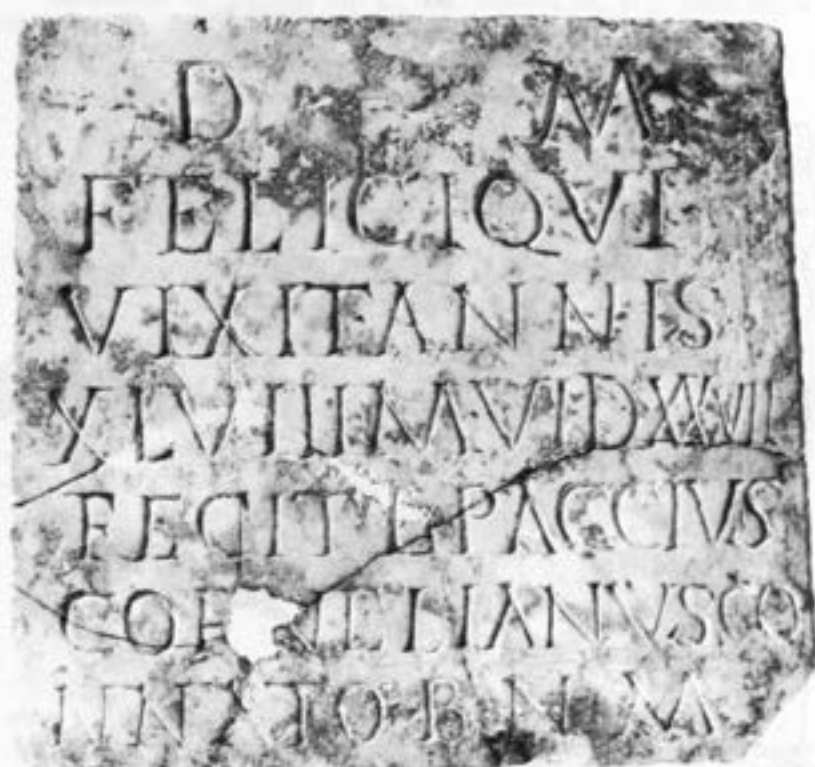 D M
FELICI QVI
VIXIT ANNIS
XLVIII M VI D XXVII
FECIT L PACCIVS
CORNELIANVS CO
B N M